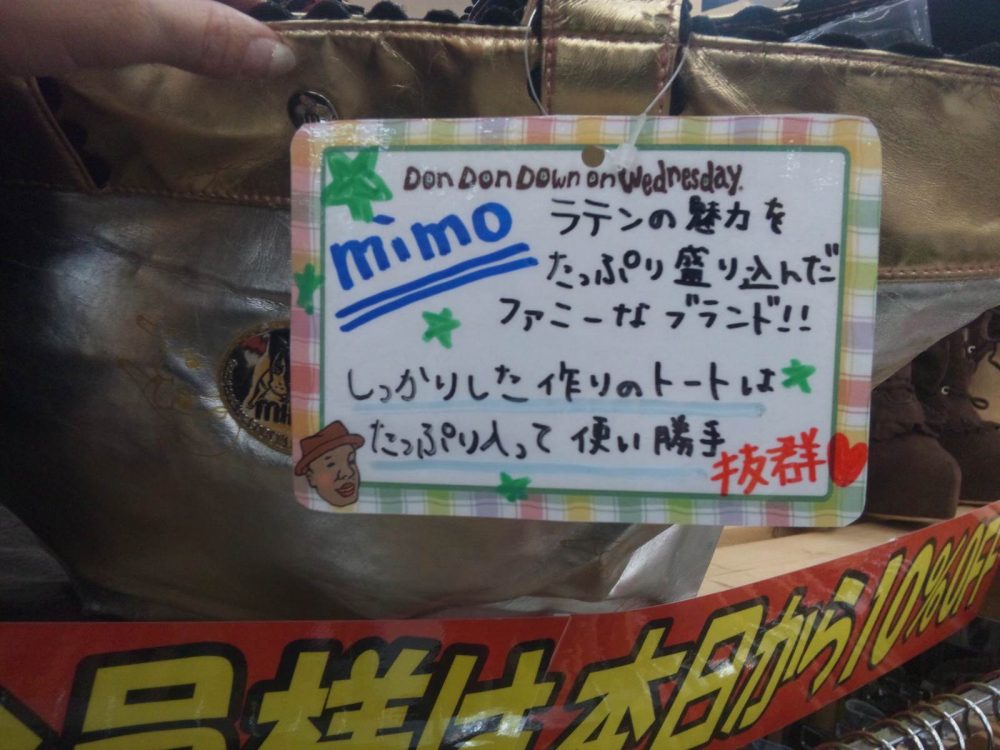 Don Don Down on Wednesday.
mimo
ラテンの魅力を
たっぷり盛り込んだ
ファミーなブランド!!
しっかりした作りのトートは
たっぷり入って使い勝手
抜群
員様は本日から10%OFF